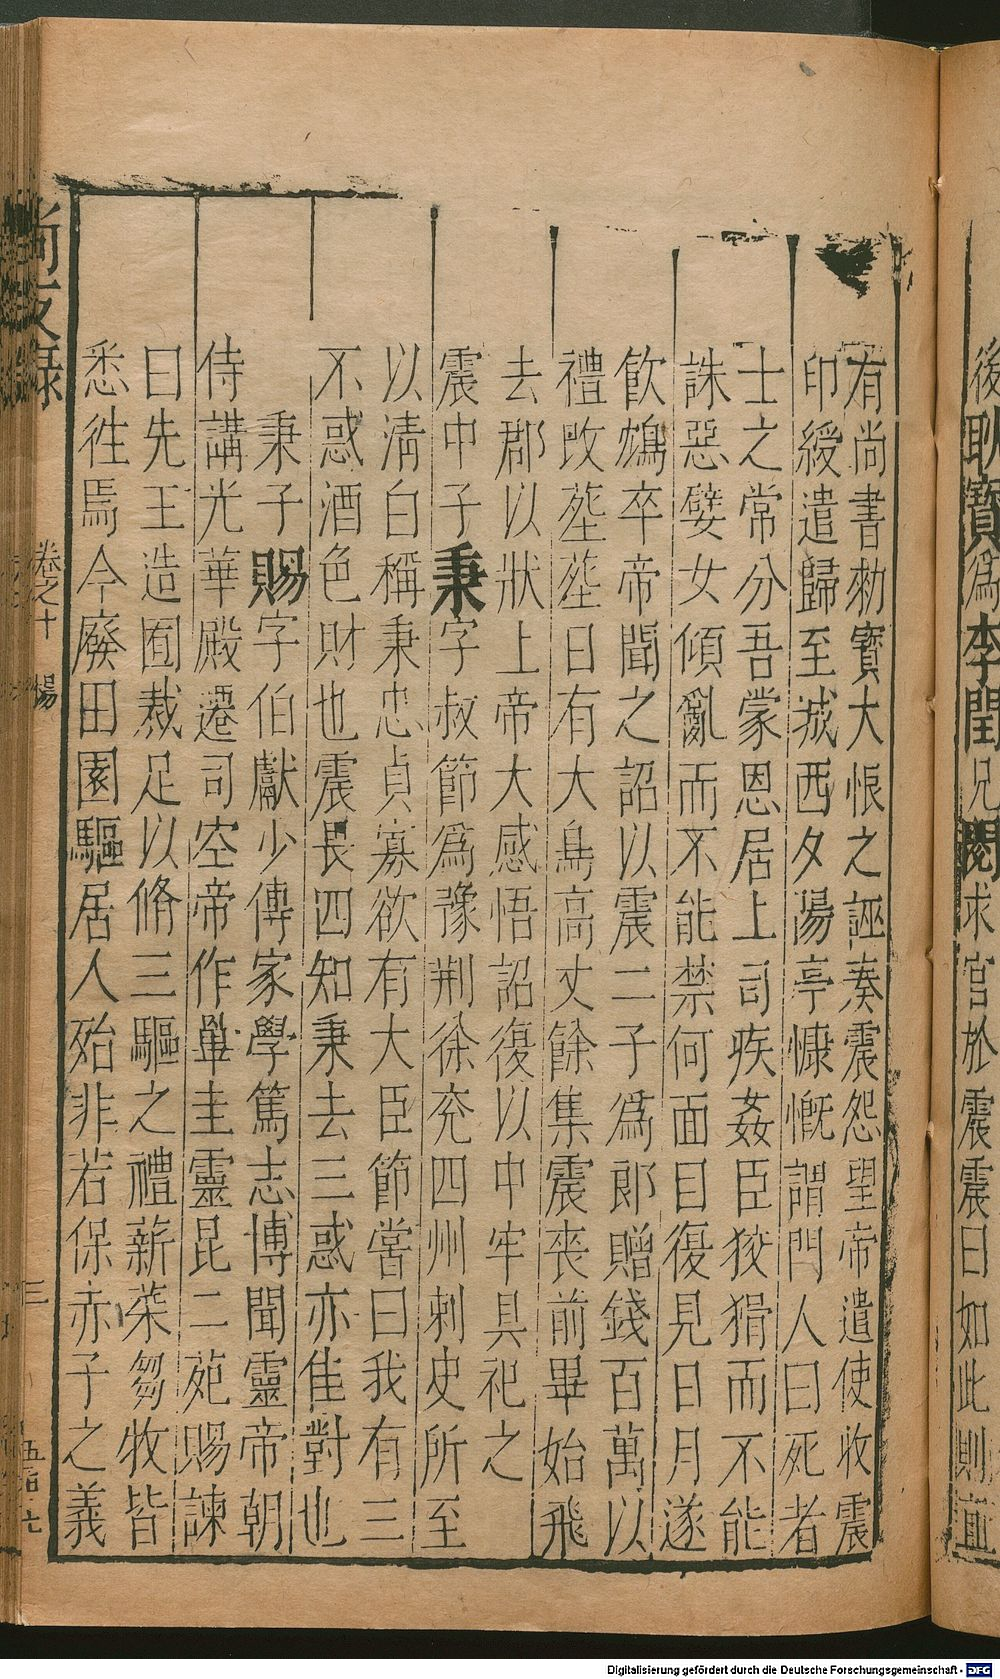 後耿寶為李閏兄閻求宮於震震曰如此則直
有尚書勑寶大恨之誣奏震怨望帝遣使收震
印綬遣歸至城西夕陽亭慷慨謂門人曰死者
士之常分吾蒙恩居上司疾姦臣狡猾而不能
誅惡嬖女傾亂而不能禁何面目復見日月遂
飲鴆卒帝聞之詔以震二子為郎贈錢百萬以
禮改塟塟日有大鳥高丈餘集震喪前畢始飛
去郡以狀上帝大感悟詔復以中牢具祀之
震中子秉字叔節為豫荆徐兖四州刺史所至
以清白稱秉忠貞寡欲有大臣節嘗曰我有三
不惑酒色財也震畏四知秉去三惑亦隹對也
秉子賜字伯獻少傳家學篤志博聞靈帝朝
侍講光華殿遷司空帝作畢圭靈昆二苑賜諫
曰先王造囿裁足以脩三驅之禮薪菜芻牧皆
悉徃焉今廢田園驅居人殆非若保赤子之義
尚友錄 卷之十 楊 三
Digitalisierung gefördert durch die Deutsche Forschungsgemeinschaft - DFG